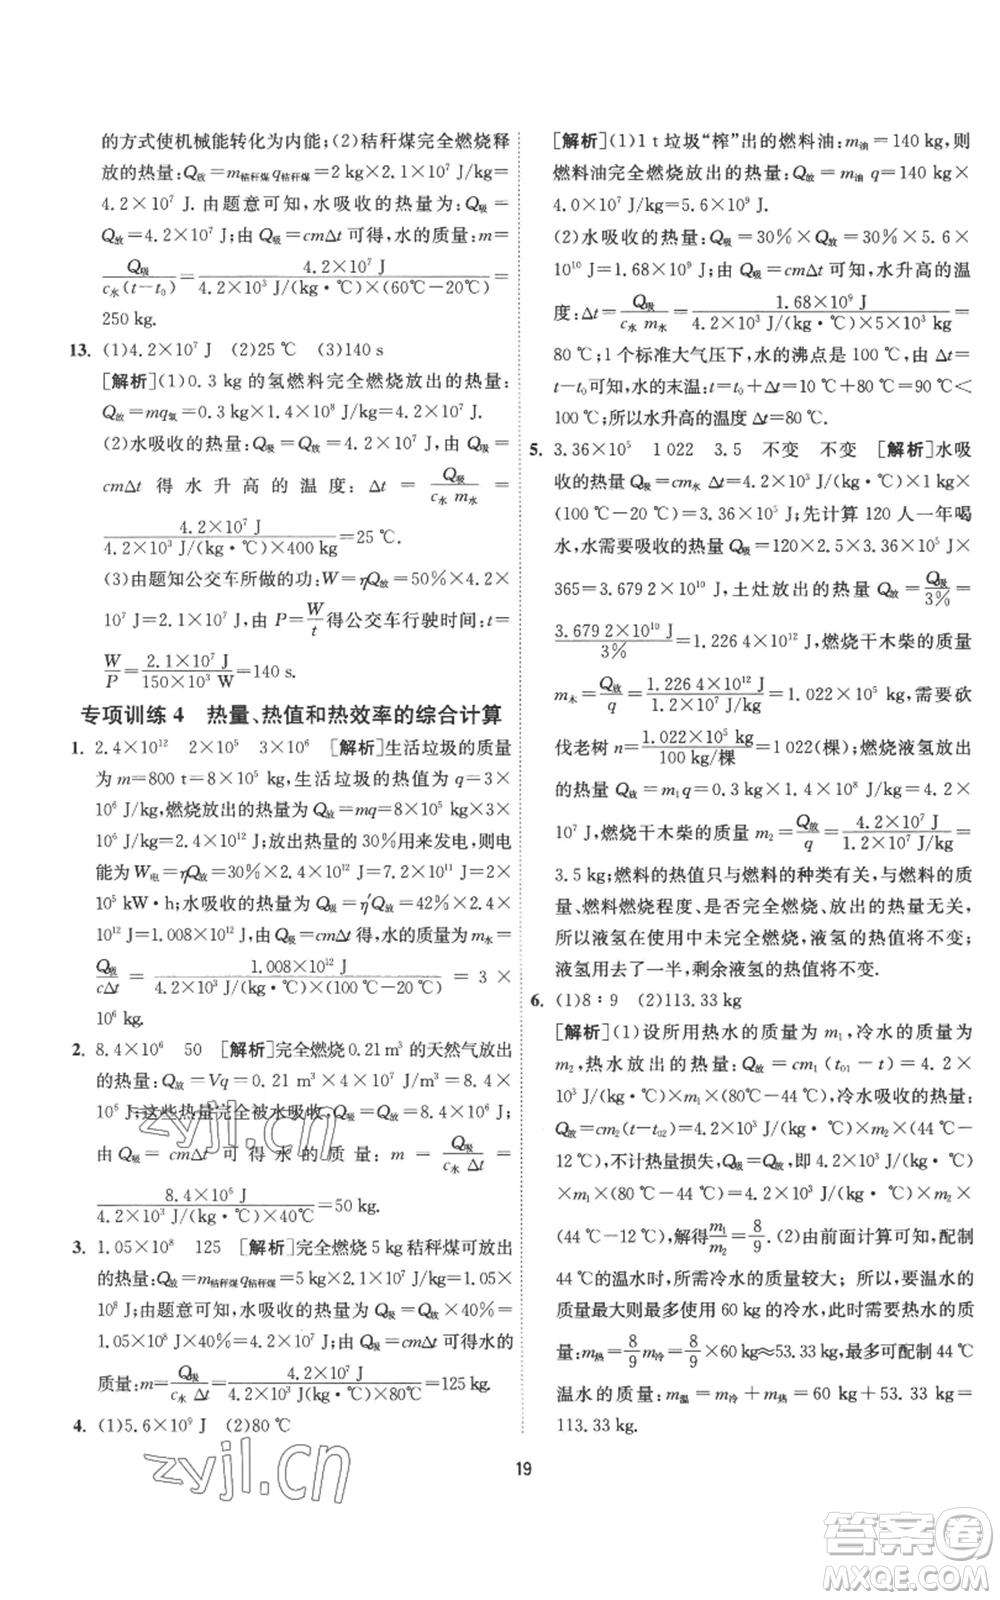 的方式使机械能转化为内能;(2)秸秆煤完全燃烧释
放的热量:Q放=m秸秆煤 q秸秆煤=2 kg×2.1×10⁷ J/kg=
4.2×10⁷ J. 由题意可知,水吸收的热量为:Q吸=
Q放=4.2×10⁷ J;由Q吸=cmΔt 可得,水的质量:m=
Q吸/c水(t-t₀)=4.2×10⁷ J/4.2×10³ J/(kg·℃)×(60℃-20℃)=
250 kg.
13. (1)4.2×10⁷ J (2)25 ℃ (3)140 s
[解析](1)0.3 kg的氢燃料完全燃烧放出的热量:
Q放=mq氢=0.3 kg×1.4×10⁸ J/kg=4.2×10⁷ J.
(2)水吸收的热量:Q吸=Q放=4.2×10⁷ J,由Q吸=
cmΔt 得水升高的温度:Δt=Q吸/c水 m水=
4.2×10⁷ J/4.2×10³ J/(kg·℃)×400 kg=25 ℃.
(3)由题知公交车所做的功:W=ηQ放=50%×4.2×
10⁷ J=2.1×10⁷ J,由P=W/t得公交车行驶时间:t=
W/P=2.1×10⁷ J/150×10³ W=140 s.
专项训练4 热量、热值和热效率的综合计算
1. 2.4×10¹² 2×10⁵ 3×10⁶ [解析]生活垃圾的质量
为m=800 t=8×10⁵ kg,生活垃圾的热值为q=3×
10⁶ J/kg,燃烧放出的热量为Q放=mq=8×10⁵ kg×3×
10⁶ J/kg=2.4×10¹² J;放出热量的30%用来发电,则电
能为W电=ηQ放=30%×2.4×10¹² J=7.2×10¹¹ J=2×
10⁵ kW·h;水吸收的热量为Q吸=η′Q放=42%×2.4×
10¹² J=1.008×10¹² J,由Q吸=cmΔt得,水的质量为m水=
Q吸/cΔt=1.008×10¹² J/4.2×10³ J/(kg·℃)×(100℃-20℃)=3×
10⁶ kg.
2. 8.4×10⁶ 50 [解析]完全燃烧0.21 m³的天然气放出
的热量:Q放=Vq=0.21 m³×4×10⁷ J/m³=8.4×
10⁶ J;这些热量完全被水吸收,Q吸=Q放=8.4×10⁶ J;
由Q吸=cmΔt可得水的质量:m=Q吸/c水 Δt=
8.4×10⁶ J/4.2×10³ J/(kg·℃)×40℃=50 kg.
3. 1.05×10⁸ 125 [解析]完全燃烧5 kg秸秆煤可放出
的热量:Q放=m秸秆煤 q秸秆煤=5 kg×2.1×10⁷ J/kg=1.05×
10⁸ J;由题意可知,水吸收的热量为Q吸=Q放×40%=
1.05×10⁸ J×40%=4.2×10⁷ J;由Q吸=cmΔt可得水的
质量:m=Q吸/c水 Δt=4.2×10⁷ J/4.2×10³ J/(kg·℃)×80℃=125 kg.
4. (1)5.6×10⁹ J (2)80 ℃
[解析](1)1 t垃圾“榨”出的燃料油:m油=140 kg,则
燃料油完全燃烧放出的热量:Q放=m油 q=140 kg×
4.0×10⁷ J/kg=5.6×10⁹ J.
(2)水吸收的热量:Q吸=30%×Q放=30%×5.6×
10¹⁰ J=1.68×10⁹ J,由Q吸=cmΔt可知,水升高的温
度:Δt=Q吸/c水 m水=1.68×10⁹ J/4.2×10³ J/(kg·℃)×5×10³ kg=
80 ℃;1个标准大气压下,水的沸点为100 ℃,由Δt=
t-t₀可知,水的末温:t=t₀+Δt=10 ℃+80 ℃=90 ℃<
100 ℃;所以水升高的温度Δt=80 ℃.
5. 3.36×10⁵ 1 022 3.5 不变 不变 [解析]水吸
收的热量Q吸=cm水 Δt=4.2×10³ J/(kg·℃)×1 kg×
(100 ℃-20 ℃)=3.36×10⁵ J;先计算120人一年喝
水,水需要吸收的热量Q吸=120×2.5×3.36×10⁵ J×
365=3.679 2×10¹⁰ J,土灶放出的热量Q放=Q吸/3%=
3.679 2×10¹⁰ J/3%=1.226 4×10¹² J,燃烧干木柴的质量
m木=Q放/q=1.226 4×10¹² J/1.2×10⁷ J/kg=1.022×10⁵ kg,需要砍
伐老树n=1.022×10⁵ kg/100 kg/棵=1 022(棵);燃烧液氢放出的
热量Q放=m₁q=0.3 kg×1.4×10⁸ J/kg=4.2×
10⁷ J,燃烧干木柴的质量m₂=Q放/q=4.2×10⁷ J/1.2×10⁷ J/kg=
3.5 kg;燃料的热值只与燃料的种类有关,与燃料的质
量、燃料燃烧程度、是否完全燃烧、放出的热量无关,
所以液氢在使用中未完全燃烧,液氢的热值将不变;
液氢用去了一半,剩余液氢的热值将不变.
6. (1)8∶9 (2)113.33 kg
[解析](1)设所用热水的质量为m₁,冷水的质量为
m₂,热水放出的热量:Q放=cm₁(t₀₁-t)=4.2×
10³ J/(kg·℃)×m₁×(80 ℃-44 ℃),冷水吸收的热量:
Q放=cm₂(t-t₀₂)=4.2×10³ J/(kg·℃)×m₂×(44 ℃-
12 ℃),不计热量损失,Q吸=Q放,即4.2×10³ J/(kg·℃)
×m₁×(80 ℃-44 ℃)=4.2×10³ J/(kg·℃)×m₂×
(44 ℃-12 ℃),解得m₁/m₂=8/9. (2)由前面计算可知,配制
44 ℃的温水时,所用冷水的质量较大;所以,要温水的
质量最大则最多使用60 kg的冷水,此时需要热水的质
量:m热=8/9 m冷=8/9×60 kg≈53.33 kg,最多可配制44 ℃
温水的质量:m温=m冷+m热=60 kg+53.33 kg=
113.33 kg.
19
zyjl.cn
zyjl.cn
答案圈
MXQE.COM